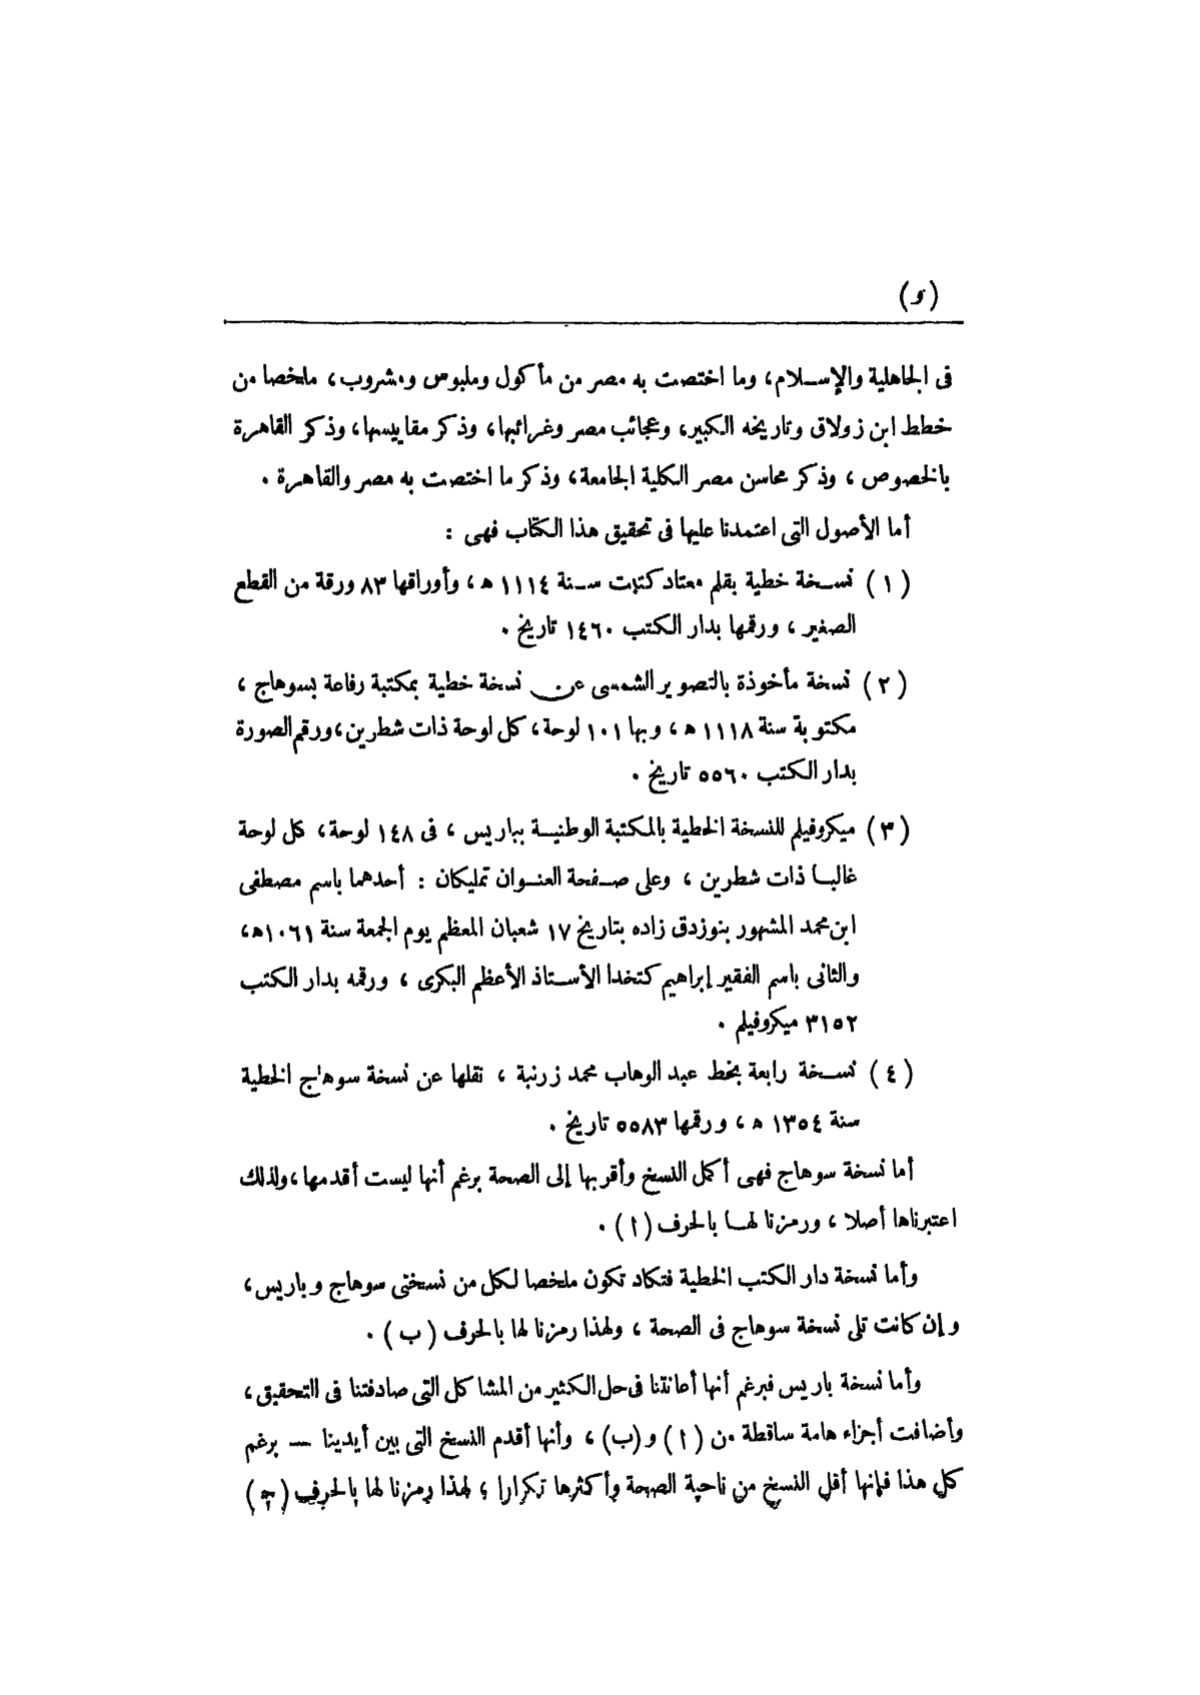 (و)
فى الجاهلية والإسلام، وما اختصت به مصر من مأكول وملبوس ومشروب، ملخصا من
خطط ابن زولاق وتاريخه الكبير، وعجائب مصر وغرائبها، وذكر مقاييسها، وذكر القاهرة
بالخصوص ، وذكر محاسن مصر الكلية الجامعة، وذكر ما اختصت به مصر والقاهرة .
أما الأصول التى اعتمدنا عليها فى تحقيق هذا الكتاب فهى :
(١) نسخة خطية بقلم معتاد كتبت سنة ١١١٤ ه، وأوراقها ٨٣ ورقة من القطع
الصغير ، ورقمها بدار الكتب ١٤٦٠ تاريخ .
(٢) نسخة مأخوذة بالتصوير الشمسى عن نسخة خطية بمكتبة رفاعة بسوهاج ،
مكتوبة سنة ١١١٨ ه، وبها ١٠١ لوحة، كل لوحة ذات شطرين، ورقم الصورة
بدار الكتب ٥٥٦٠ تاريخ .
(٣) ميكروفيلم للنسخة الخطية بالمكتبة الوطنية بباريس ، فى ١٤٨ لوحة، كل لوحة
غالبا ذات شطرين ، وعلى صفحة العنوان تمليكان : أحدهما باسم مصطفى
ابن محمد المشهور بنوزدق زاده بتاريخ ١٧ شعبان المعظم يوم الجمعة سنة ١٠٦١ه،
والثانى باسم الفقير إبراهيم كتخدا الأستاذ الأعظم البكرى ، ورقمه بدار الكتب
٣١٥٢ ميكروفيلم .
(٤) نسخة رابعة بخط عبد الوهاب محمد زرنبة ، نقلها عن نسخة سوهاج الخطية
سنة ١٣٥٤ ه، ورقمها ٥٥٨٣ تاريخ .
أما نسخة سوهاج فهى أكمل النسخ وأقربها إلى الصحة برغم أنها ليست أقدمها، ولذلك
اعتبرناها أصلا ، ورمزنا لها بالحرف (ا) .
وأما نسخة دار الكتب الخطية فتكاد تكون ملخصا لكل من نسختى سوهاج وباريس،
وإن كانت تلى نسخة سوهاج فى الصحة ، ولهذا رمزنا لها بالحرف (ب) .
وأما نسخة باريس فبرغم أنها أعانتنا فى حل الكثير من المشاكل التى صادفتنا فى التحقيق،
وأضافت أجزاء هامة ساقطة من (ا) و (ب) ، وأنها أقدم النسخ التى بين أيدينا — برغم
كل هذا فإنها أقل النسخ من ناحية الصحة وأكثرها تكرارا ؛ لهذا رمزنا لها بالحرف (ج)